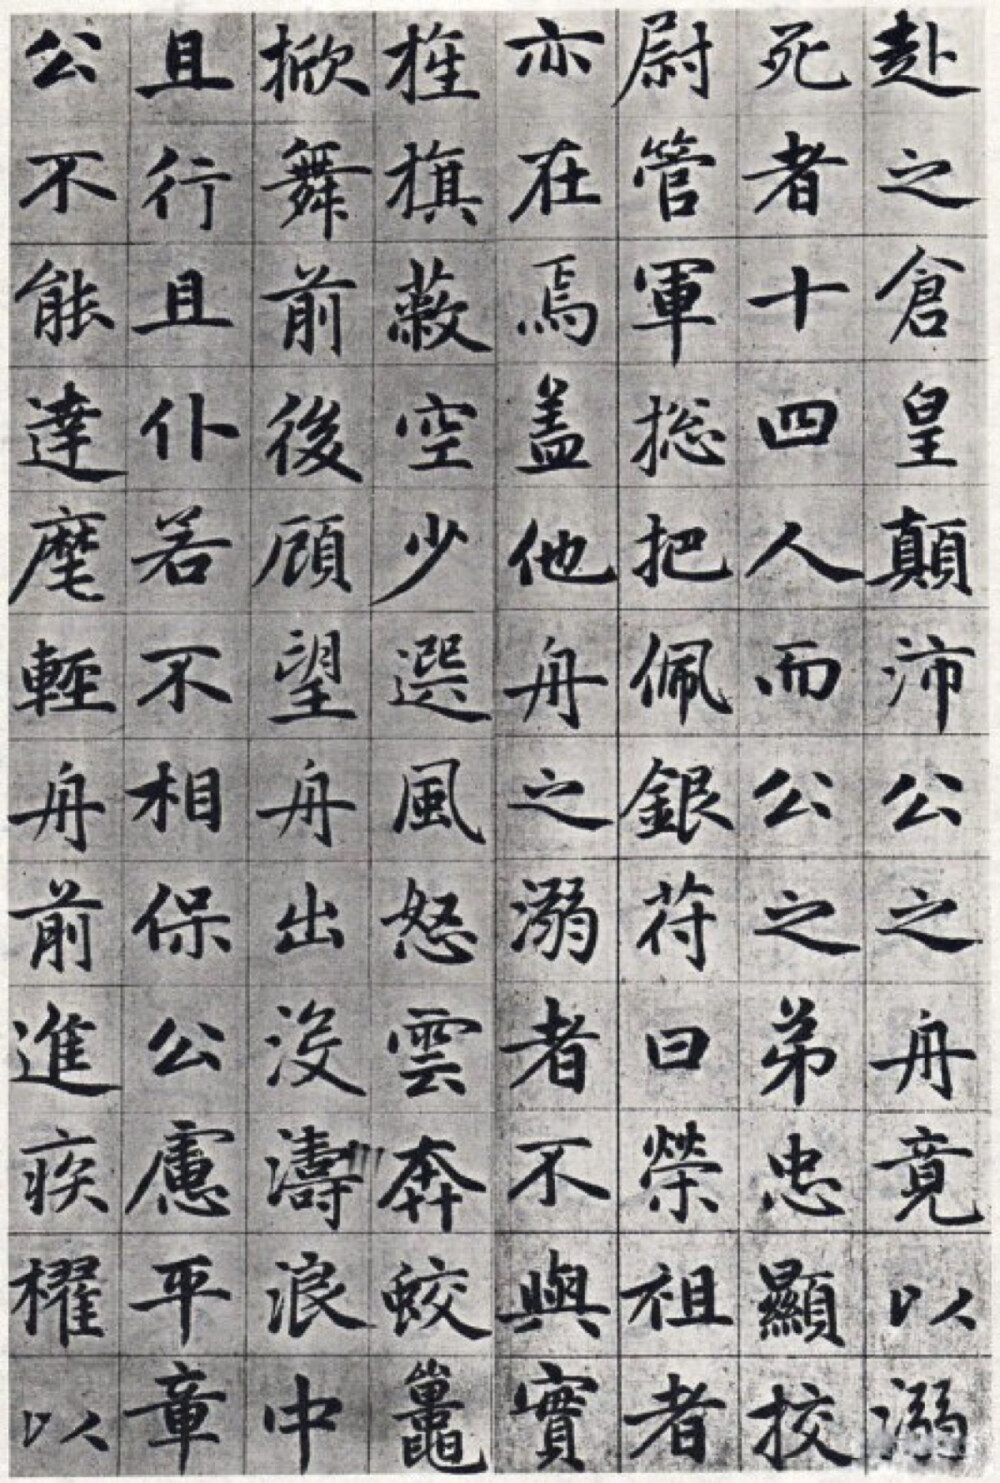 赴之倉皇顛沛公之舟竟以溺
死者十四人而公之弟忠顯校
尉管軍捴把佩銀苻曰榮祖者
亦在焉盖他舟之溺者不與實
旌旗蔽空少選風怒雲奔蛟鼉
掀舞前後顧望舟出没濤浪中
且行且仆若不相保公慮平章
公不能達麾輕舟前進疾櫂以